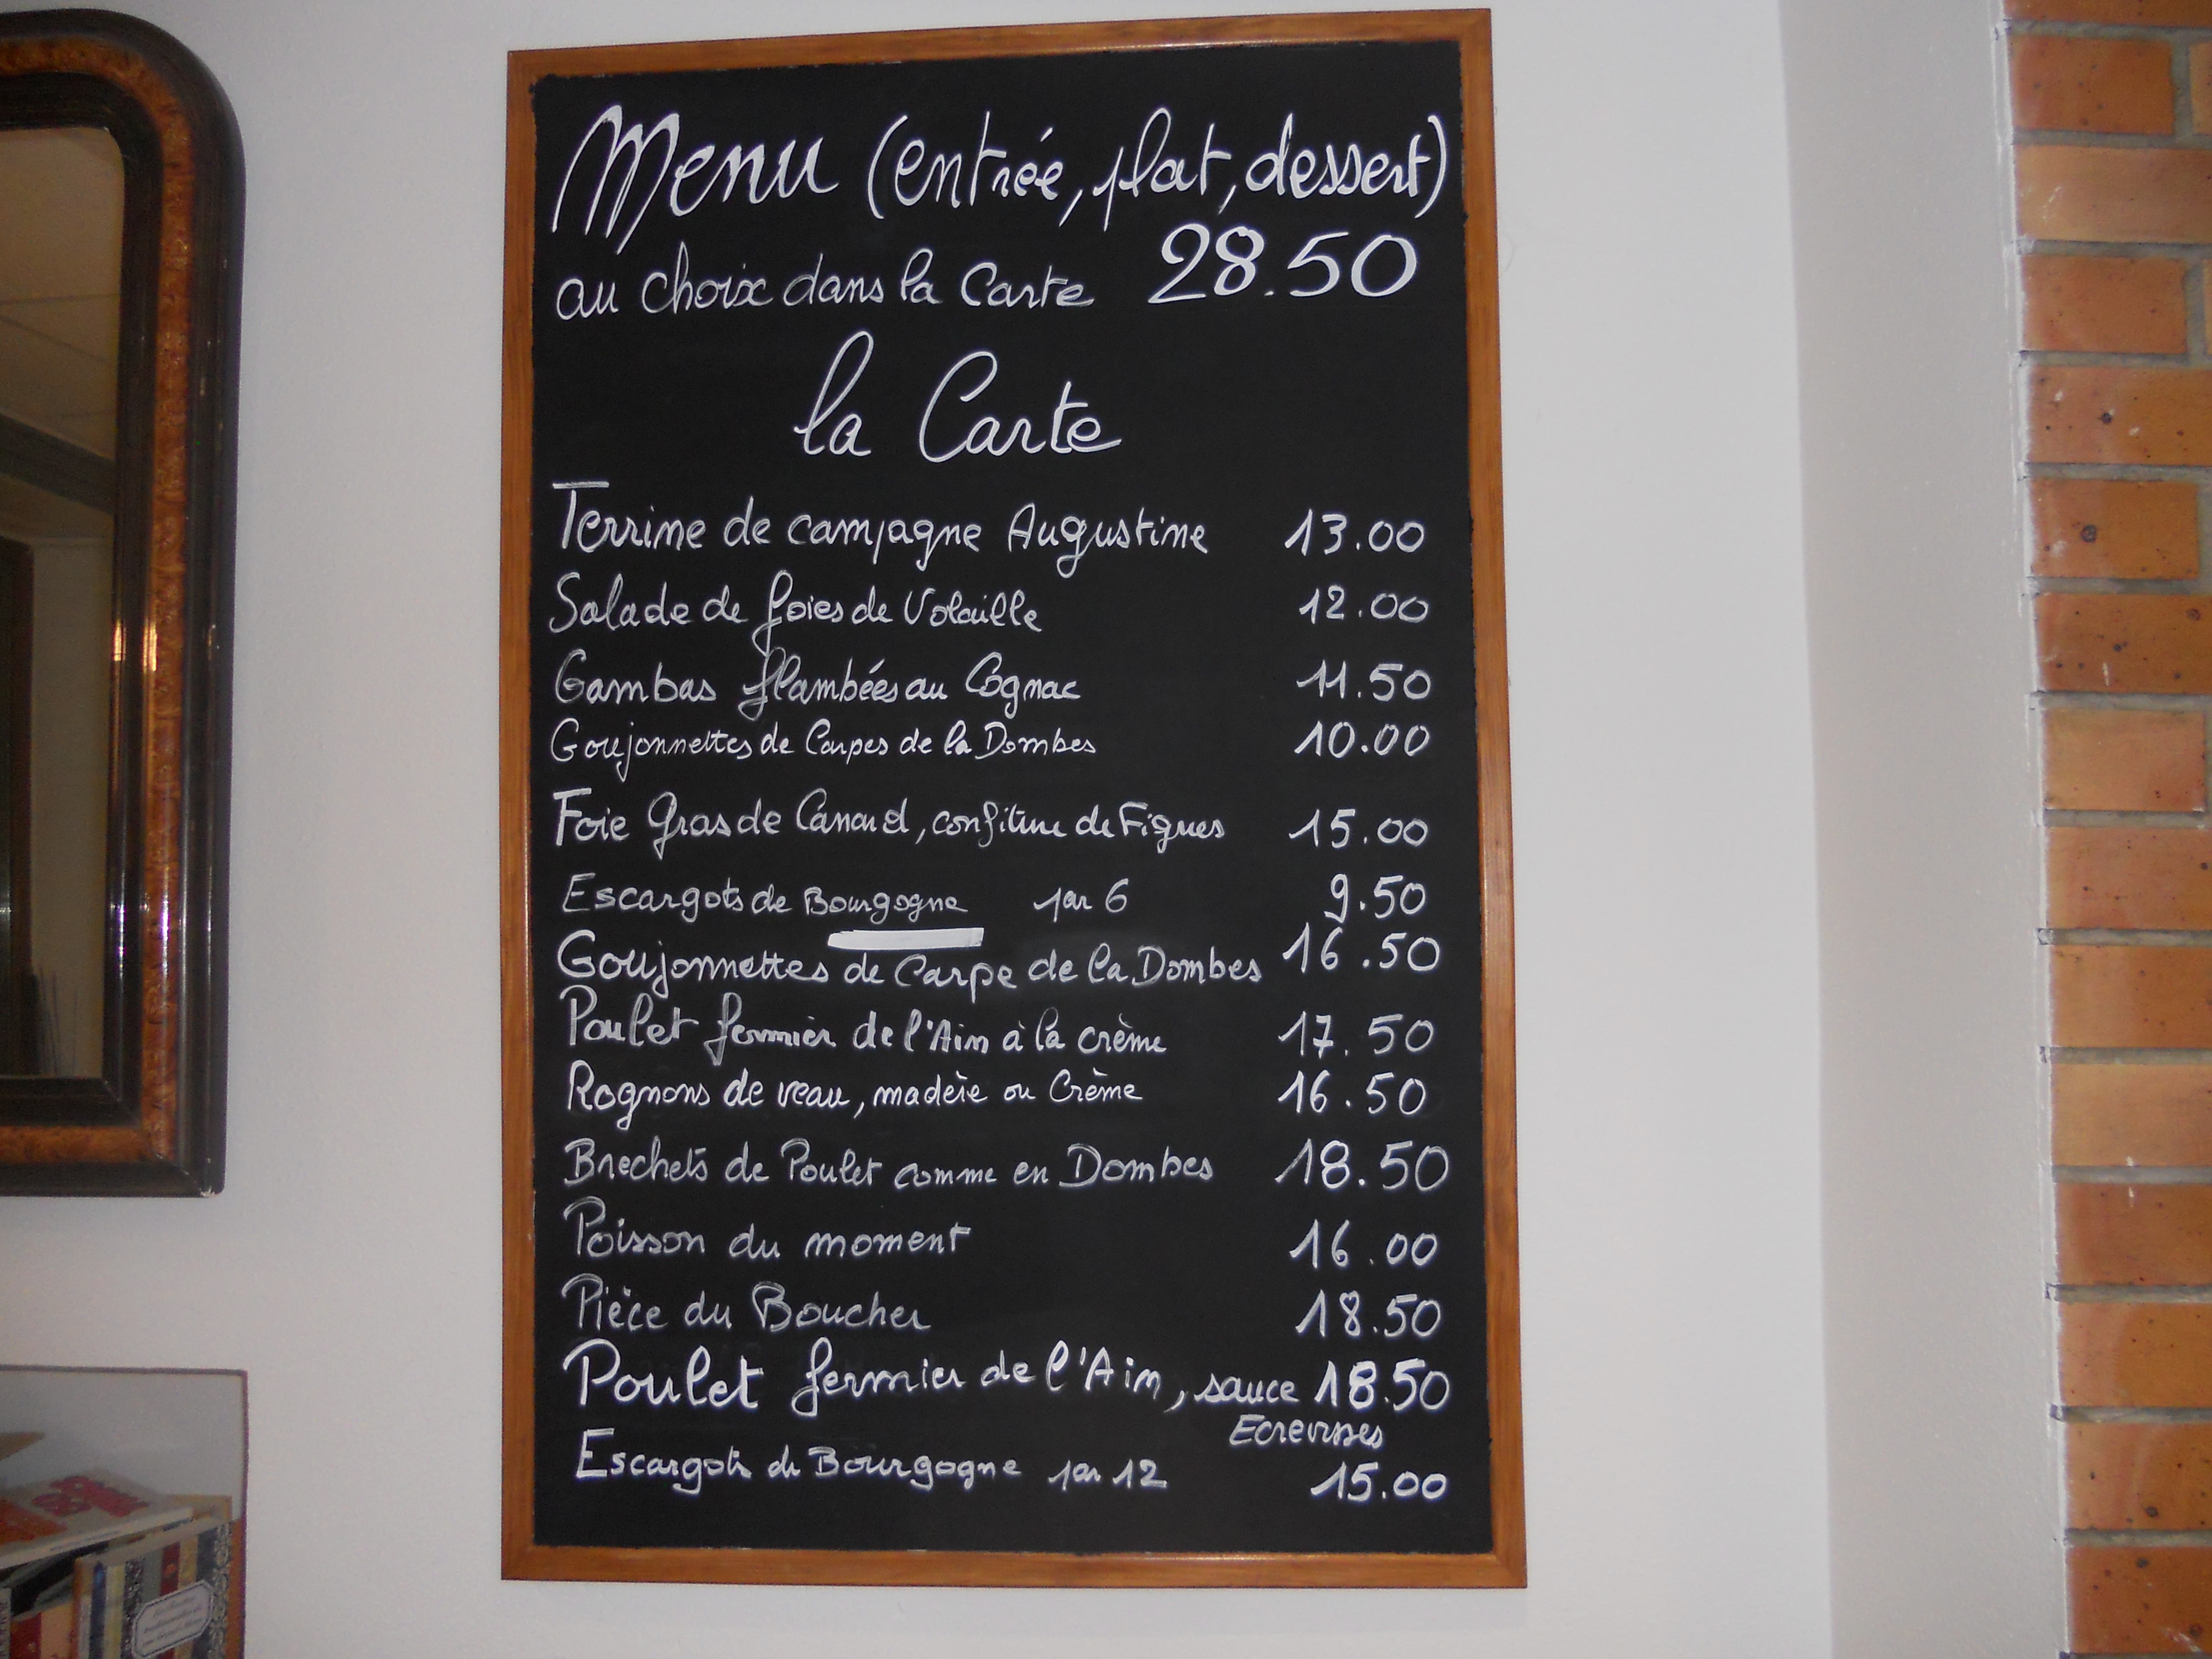 Menu (entrée, plat, dessert)
au choix dans la Carte 28.50
la Carte
Terrine de campagne Augustine 13.00
Salade de foies de Volaille 12.00
Gambas flambées au Cognac 11.50
Goujonnettes de Carpes de la Dombes 10.00
Foie Gras de Canard, confiture de Figues 15.00
Escargots de Bourgogne par 6 9.50
Goujonnettes de Carpe de la Dombes 16.50
Poulet fermier de l'Ain à la crème 17.50
Rognons de veau, madère ou Crème 16.50
Brechets de Poulet comme en Dombes 18.50
Poisson du moment 16.00
Pièce du Boucher 18.50
Poulet fermier de l'Ain, sauce 18.50
Ecrevisses
Escargots de Bourgogne par 12 15.00